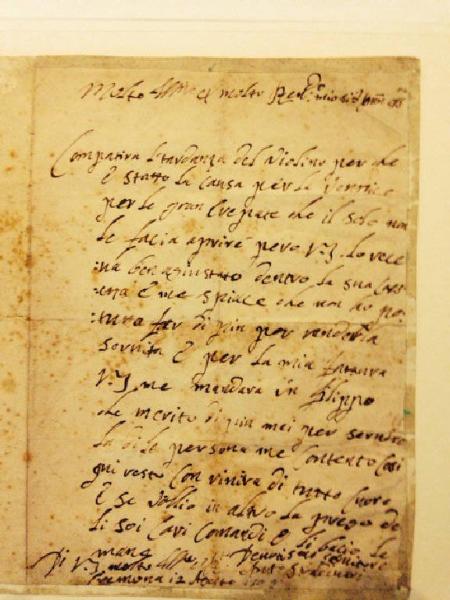 Molto Ill.re et molto Rev.do
Compatira l tardanza del Violino per che
è statto la causa per la Vernice
per le gran crepate che il sole non
le facia aprire pero V.S. lo rece
:va ben agiustato dentro la sua Cas
è me spiace che non ò po
:tuto far di piu per renderla
Servita è per la mia fatura
V.S. me mandara un filippo
che merito di piu mai per servire
la di Le persona me contento Cosi
qui resto con rivirirla di tutto cuore
È se vallio in altro la prego de
li soi Cari Comandi è li bacio le
mane
Di V.S. molto Ill.re
Cremona 12 Agosto